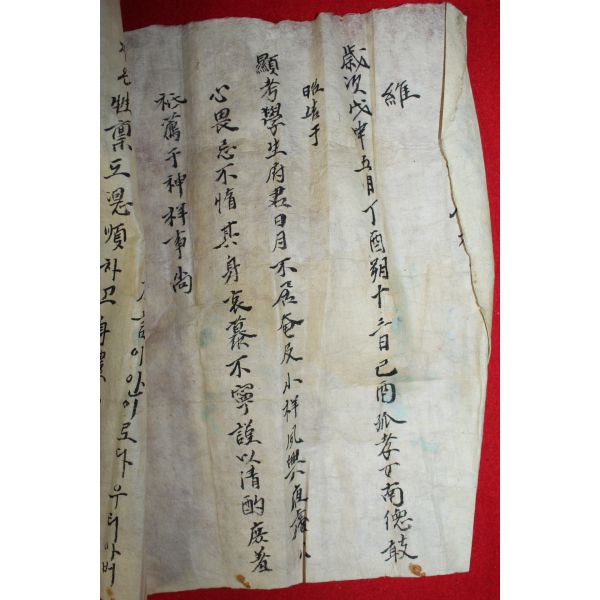 維
歲次戊申五月丁酉朔十三日己酉孤孝子南德
昭告于
顯考學生府君日月不居奄及小祥夙興夜處小
心畏忌不惰其身哀慕不寧謹以清酌庶羞
祗薦于神祥事尙
이안이로다우리아버
性稟도順하고